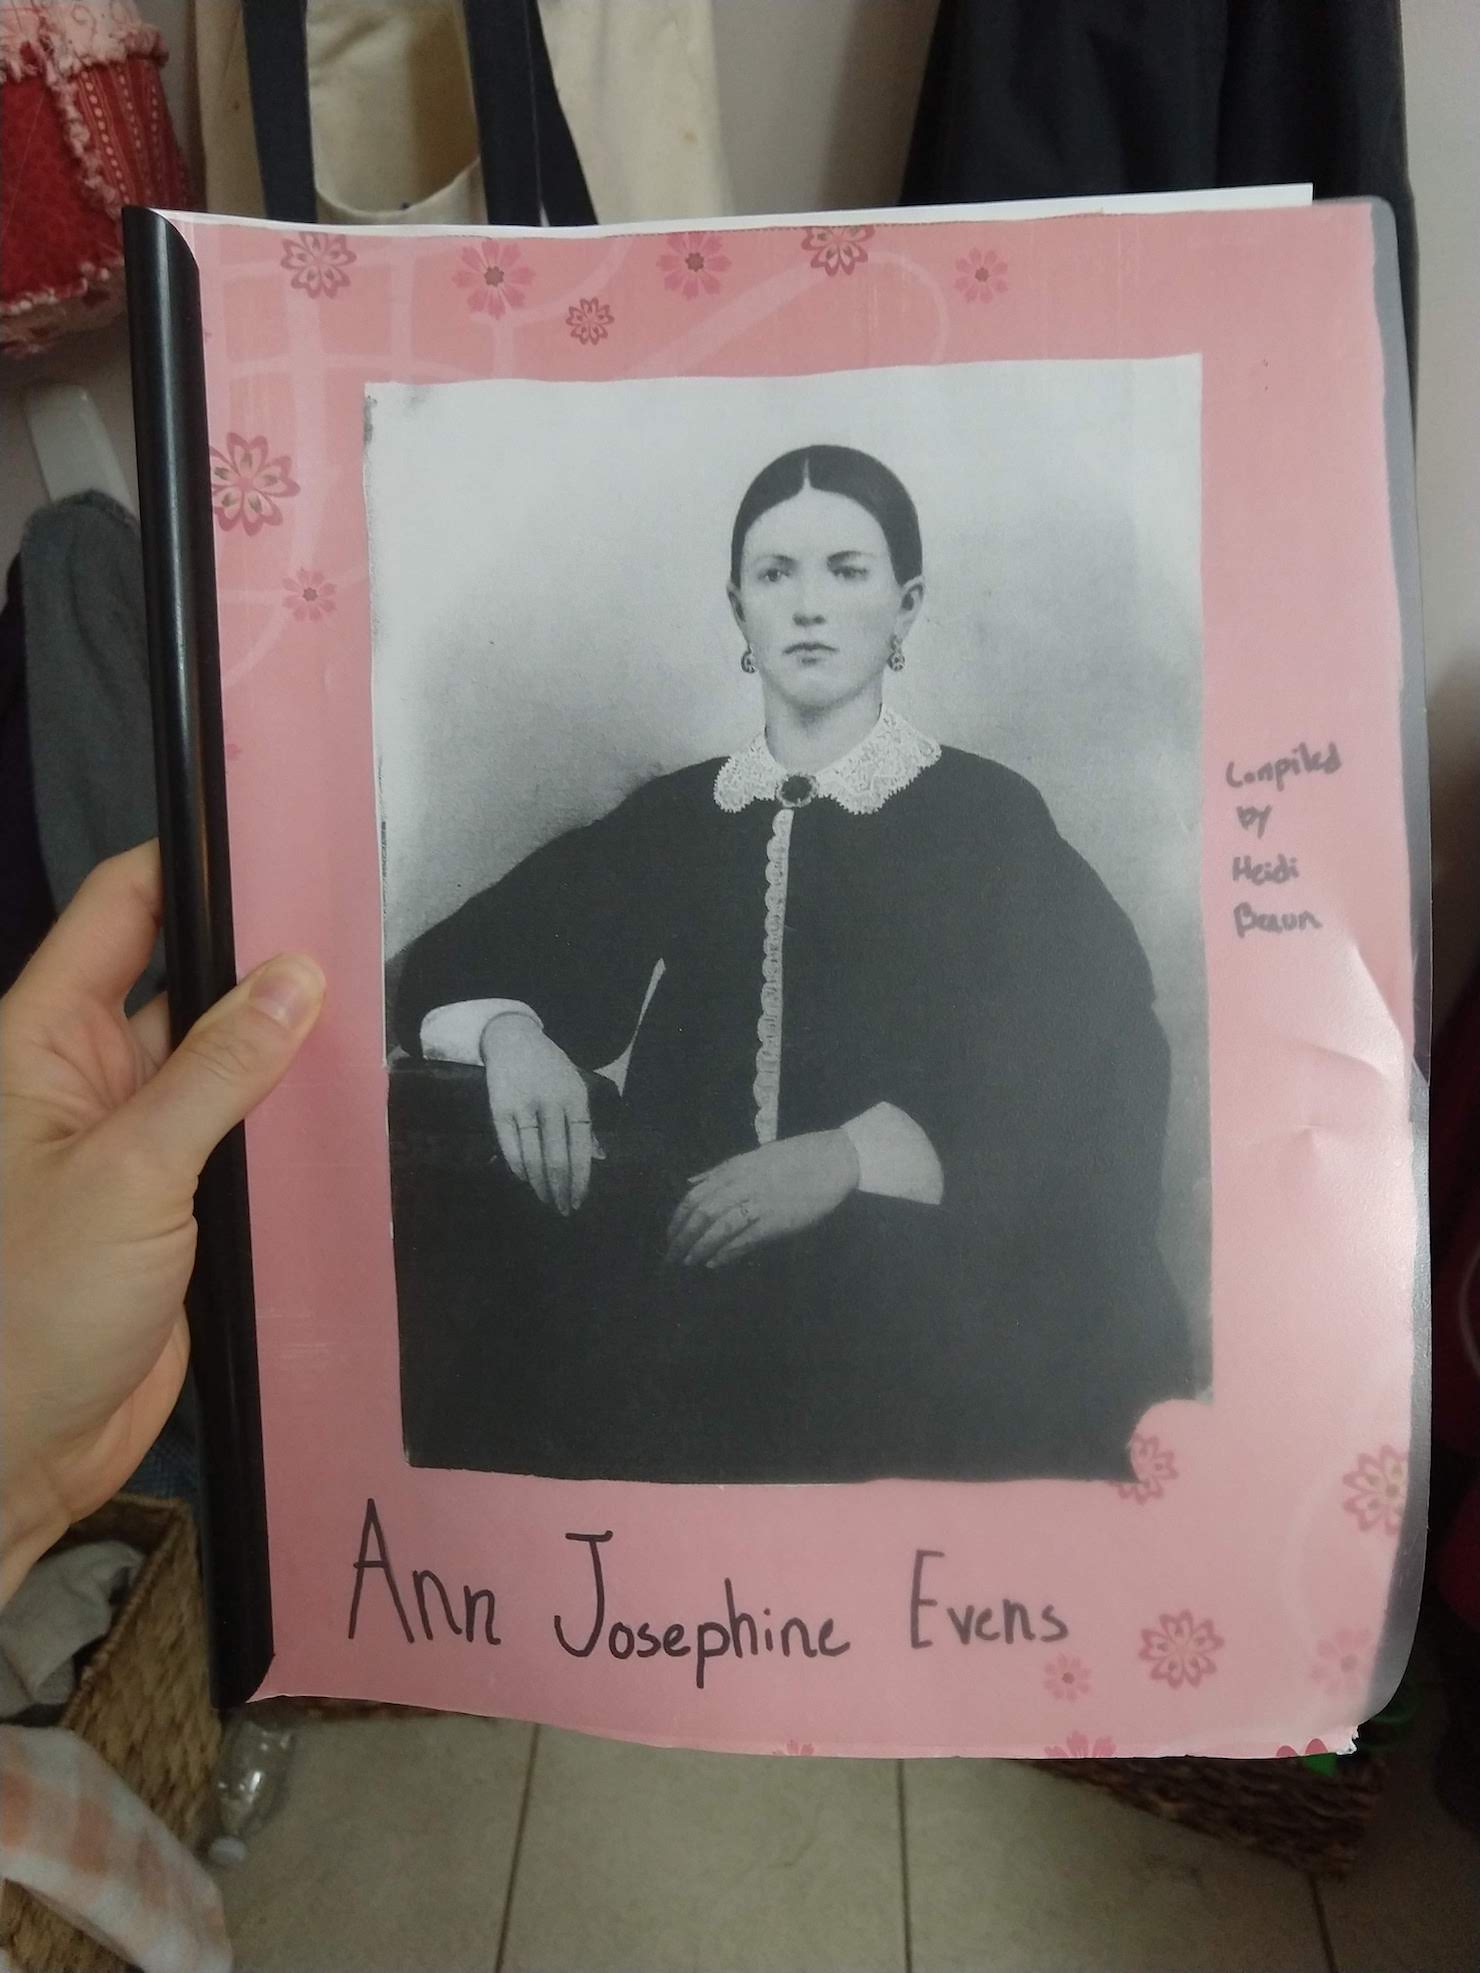 Compiled
by
Heidi
Braun
Ann Josephine Evens